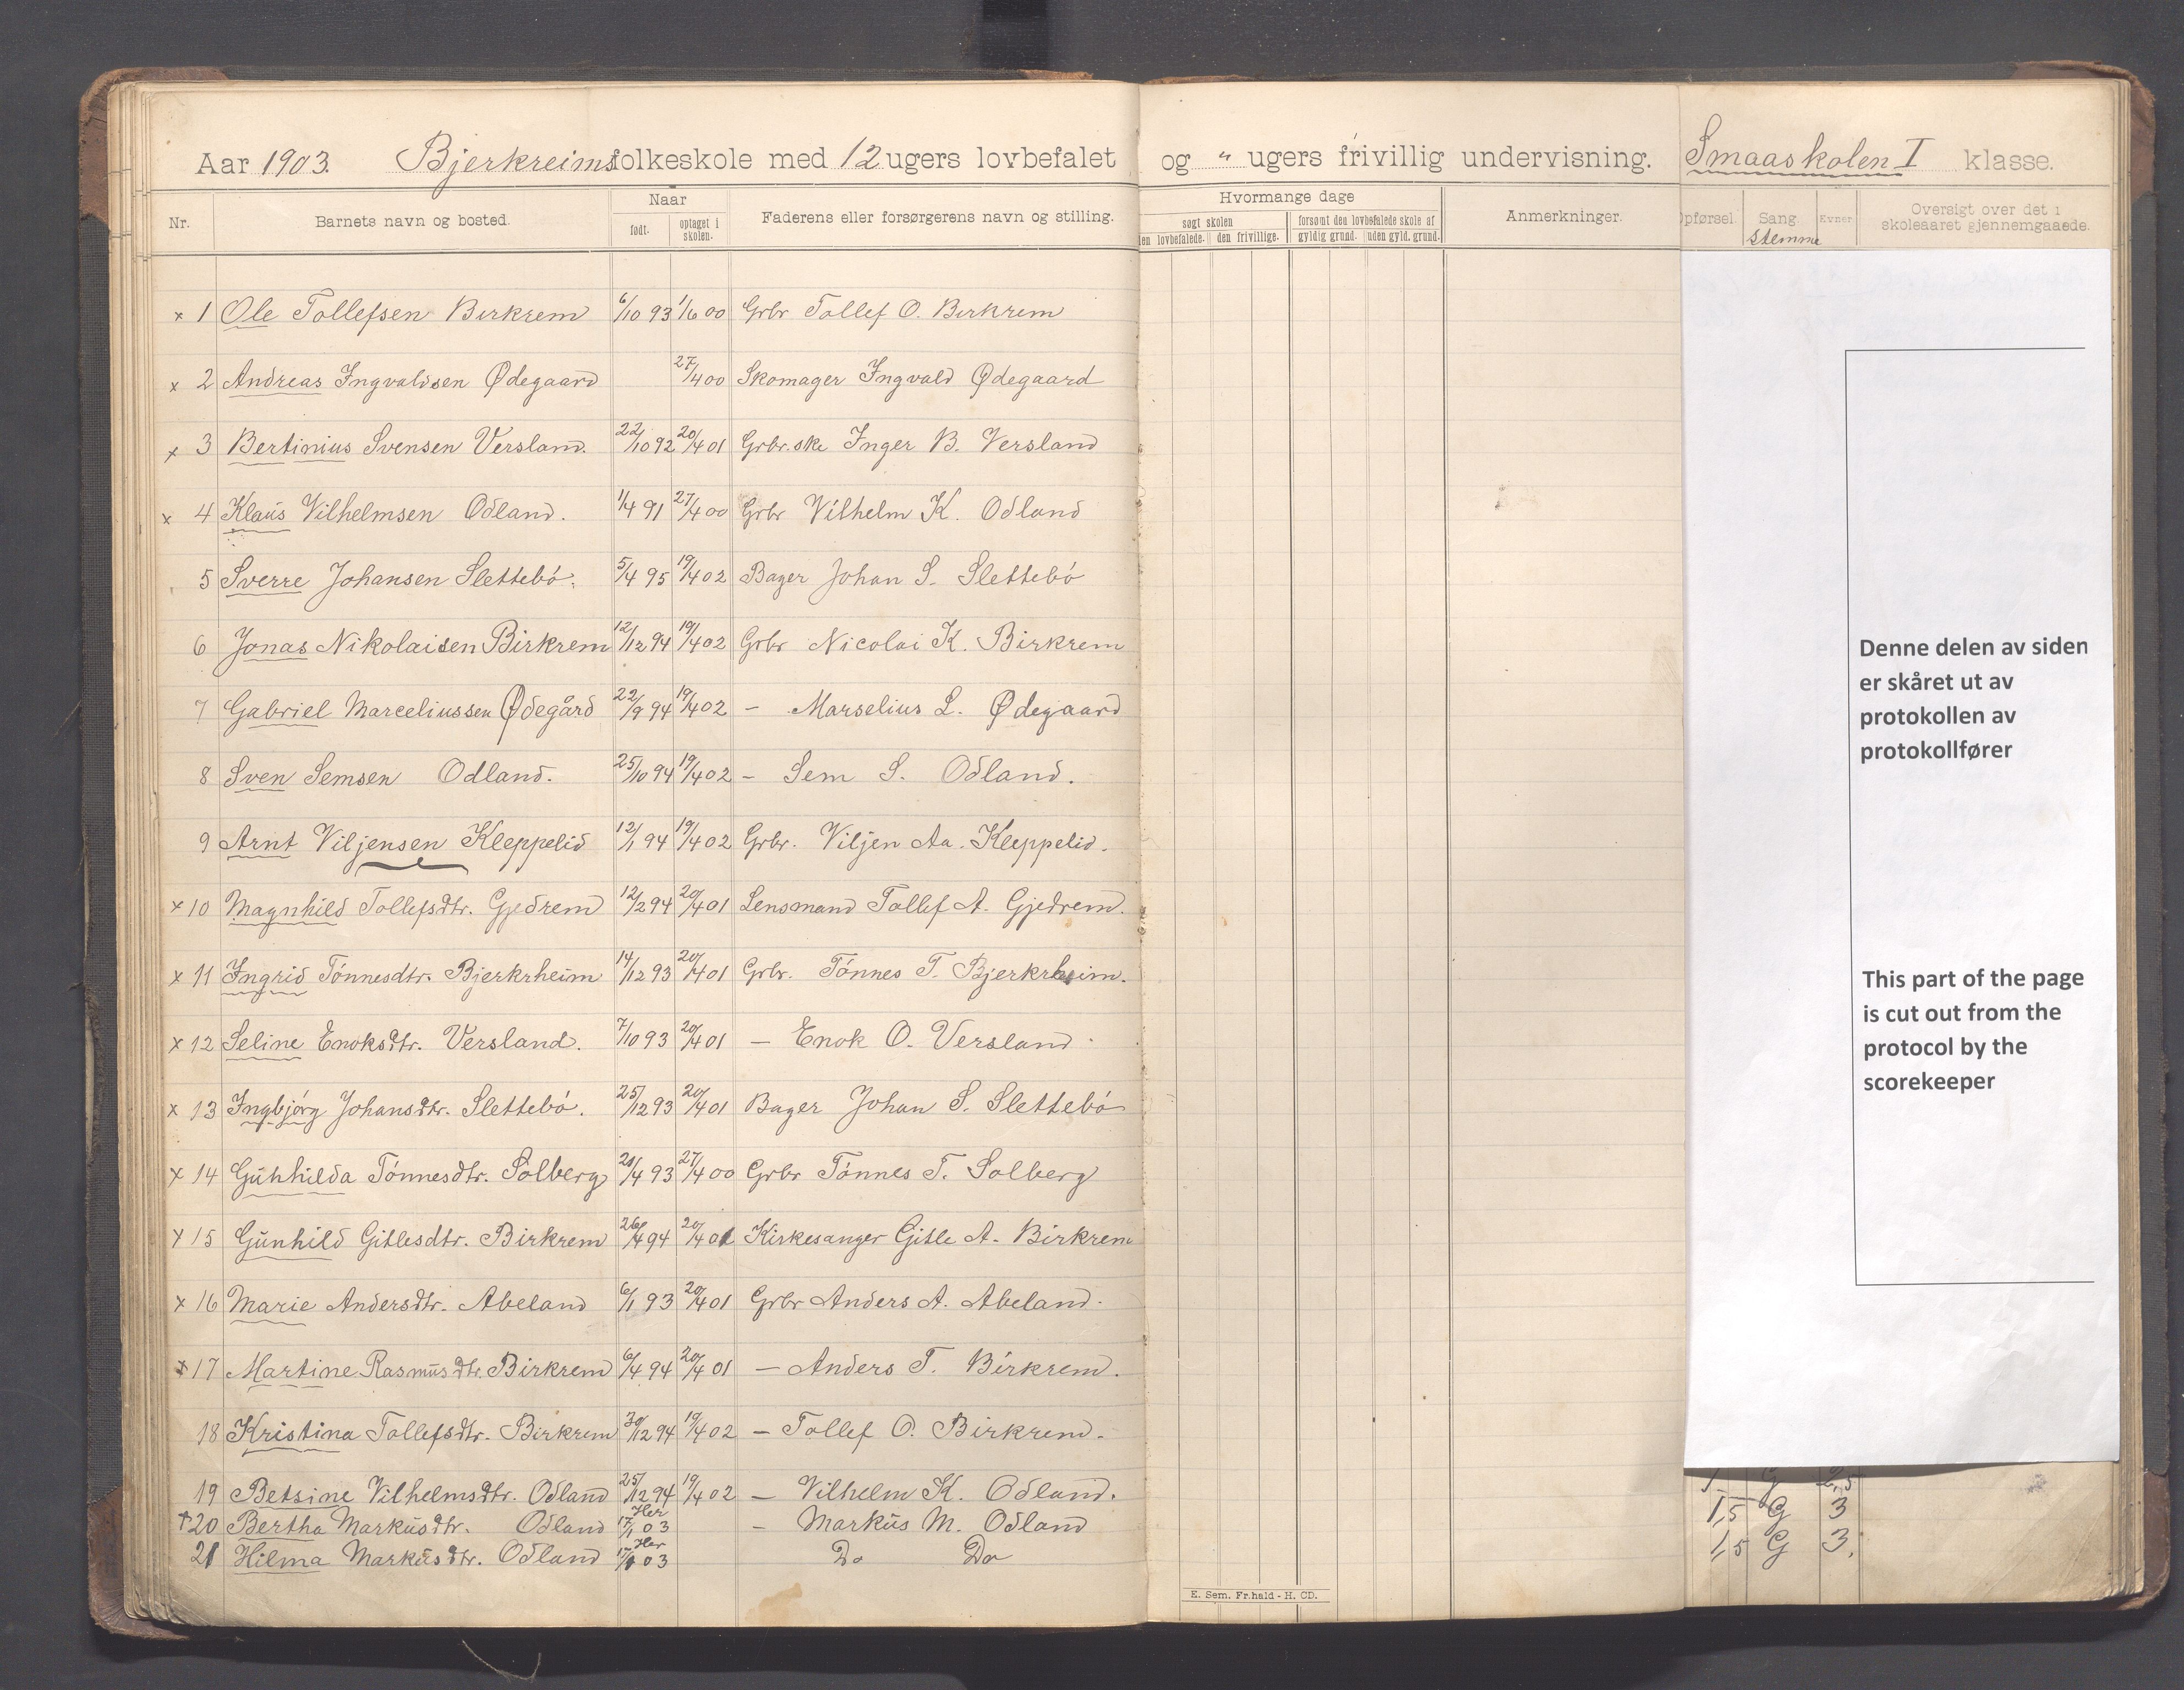 Aar 1903. Bjerkreims folkeskole med 12 ugers lovbefalet og " ugers frivillig undervisning. Smaaskolen I klasse.
Nr. Barnets navn og bosted. Naar født. optaget i skolen. Faderens eller forsørgerens navn og stilling. Hvormange dage søgt skolen den lovbefalede. den frivillige. forsømt den lovbefalede skole af gyldig grund. uden gyld. grund. Anmerkninger. Opførsel. Sang Stemme Evner Oversigt over det i skoleaaret gjennemgaaede.
x 1 Ole Tollefsen Birkrem 6/10 93 1/6 00 Grbr Tollef O. Birkrem
x 2 Andreas Ingvaldsen Ødegaard 27/4 00 Skomager Ingvald Ødegaard
x 3 Bertinius Svensen Versland. 22/10 92 20/4 01 Grbr.ske Inger B. Versland
x 4 Klaus Vilhelmsen Odland. 1/4 91 27/4 00 Grbr Vilhelm K. Odland
5 Sverre Johansen Slettebó. 5/4 95 19/4 02 Bager Johan S. Slettebó
6 Jonas Nikolaisen Birkrem 12/12 94 19/4 02 Grbr Nicolai K. Birkrem
7 Gabriel Marceliussen Ødegård 22/9 94 19/4 02 - Marselius L. Ødegaard
8 Sven Semsen Odland. 25/10 94 19/4 02 - Sem S. Odland.
9 Arnt Viljensen Kleppelid 12/1 94 19/4 02 Grbr. Viljen Aa. Kleppelid.
x 10 Magnhild Tollefsdtr. Gjedrem 12/2 94 20/4 01 Lensmand Tollef A. Gjedrem.
x 11 Ingrid Tónnesdtr. Bjerkrheim 14/12 93 20/4 01 Grbr. Tónnes T. Bjerkrheim.
x 12 Seline Enoksdtr. Versland. 7/10 93 20/4 01 - Enok O. Versland
x 13 Ingbjórg Johansdtr. Slettebó. 25/12 93 20/4 01 Bager Johan S. Slettebó
x 14 Gunhilda Tónnesdtr. Solberg 21/4 93 27/4 00 Grbr Tónnes T. Solberg
x 15 Gunhild Gitlesdtr. Birkrem 26/4 94 20/4 01 Kirkesanger Gitle A. Birkrem
x 16 Marie Andersdtr. Abeland 6/1 93 20/4 01 Grbr Anders A. Abeland.
x 17 Martine Rasmusdtr. Birkrem 6/4 94 20/4 01 - Anders T. Birkrem.
18 Kristina Tollefsdtr. Birkrem 30/12 94 19/4 02 - Tollef O. Birkrem.
19 Betsine Vilhelmsdtr. Odland 25/12 94 19/4 02 - Vilhelm K. Odland.
20 Bertha Markusdtr. Odland Her 17/1 03 - Markus M. Odland 1,5 G 3
21 Hilma Markusdtr. Odland Her 17/1 03 Do Do 1,5 G 3.
E. Sem. Fr.hald - H. CD.
Denne delen av siden
er skåret ut av
protokollen av
protokollfører
This part of the page
is cut out from the
protocol by the
scorekeeper